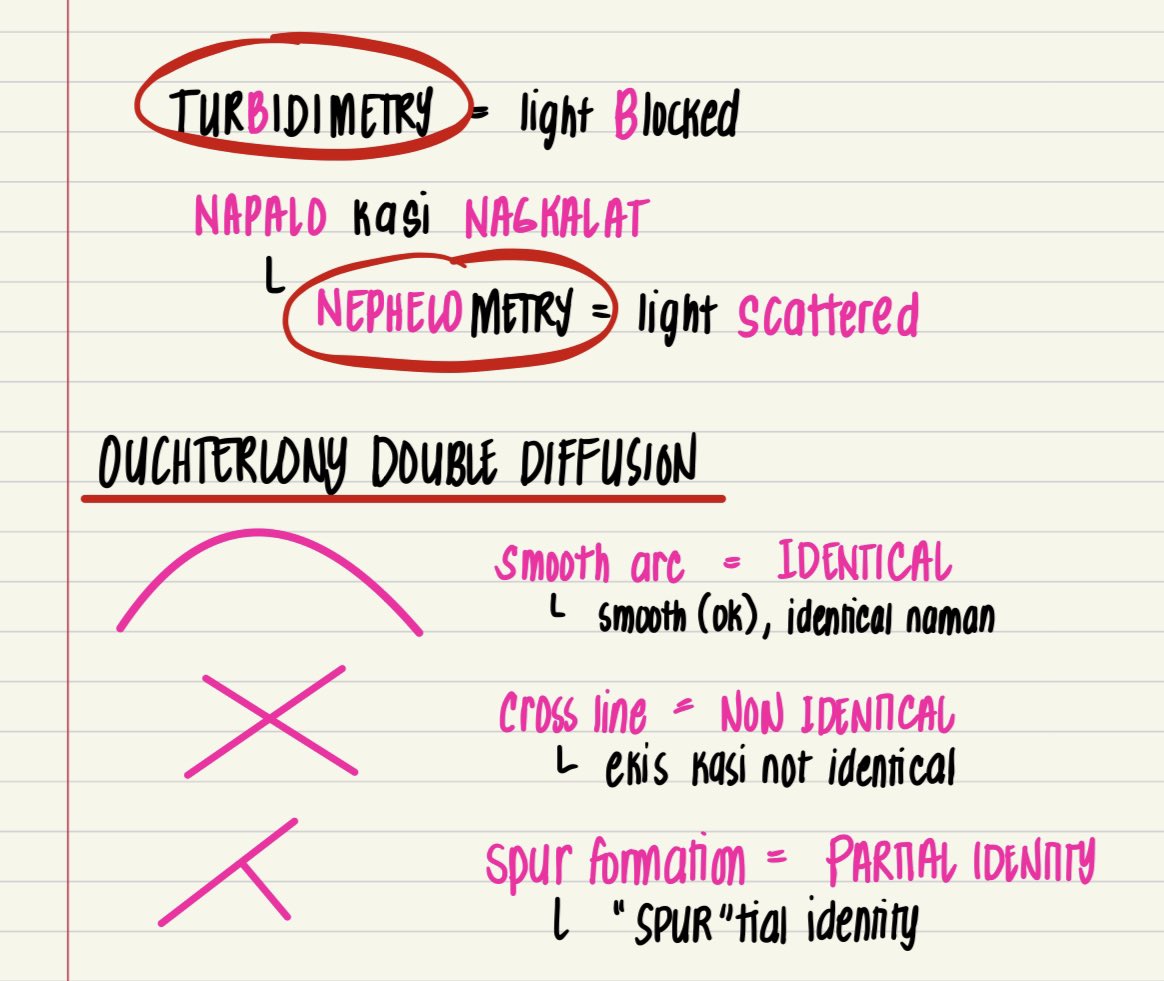 TURBIDIMETRY = light Blocked
NAPALO kasi NAGKALAT
NEPHELOMETRY = light scattered
OUCHTERLONY DOUBLE DIFFUSION
smooth arc = IDENTICAL
smooth (ok), identical naman
cross line = NON IDENTICAL
ekis kasi not identical
spur formation = PARTIAL IDENTITY
"SPUR"tial identity